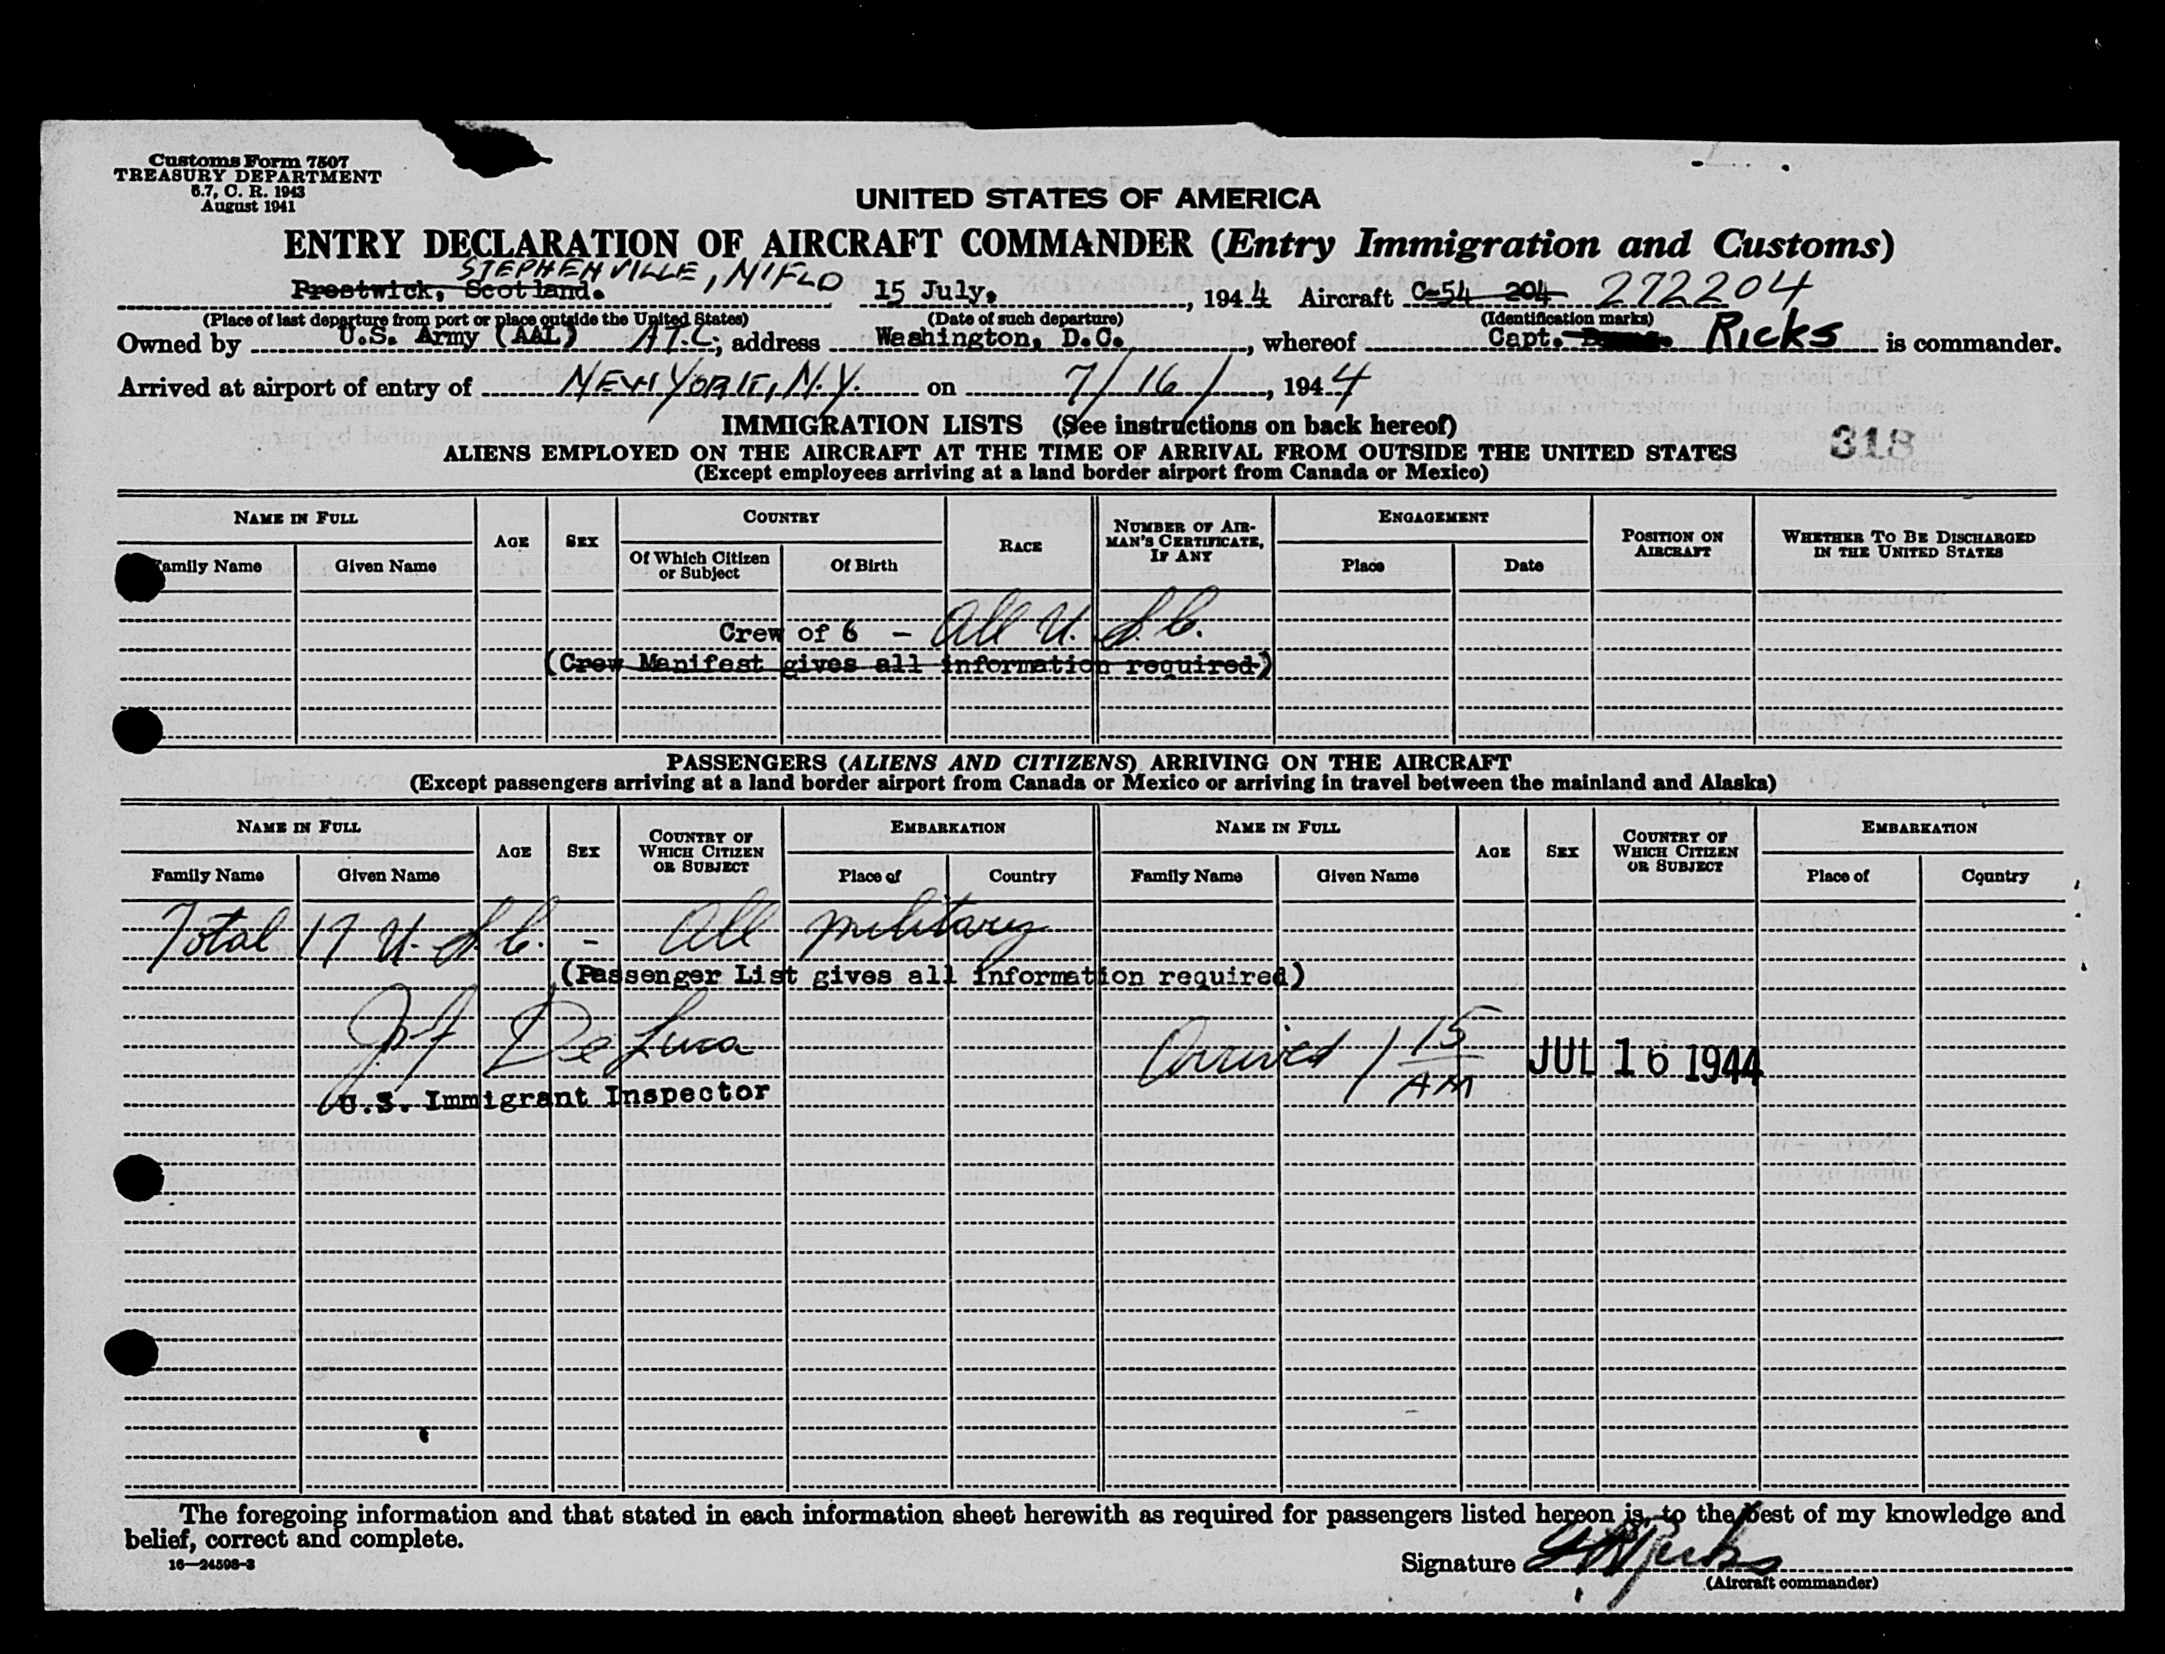 Customs Form 7507
TREASURY DEPARTMENT
6.7, C. R. 1943
August 1941
UNITED STATES OF AMERICA
ENTRY DECLARATION OF AIRCRAFT COMMANDER (Entry Immigration and Customs)
STEPHENVILLE, N'FLD
Prestwick, Scotland. 15 July, , 1944 Aircraft C-54 204 272204
(Place of last departure from port or place outside the United States) (Date of such departure) (Identification marks)
Owned by U.S. Army (AAL) A.T.C.; address Washington, D.C. , whereof Capt. Ricks is commander.
Arrived at airport of entry of NEW YORK, N.Y. on 7/16/ , 1944
IMMIGRATION LISTS (See instructions on back hereof)
318
ALIENS EMPLOYED ON THE AIRCRAFT AT THE TIME OF ARRIVAL FROM OUTSIDE THE UNITED STATES
(Except employees arriving at a land border airport from Canada or Mexico)
NAME IN FULL AGE SEX COUNTRY RACE NUMBER OF AIR-MAN'S CERTIFICATE, IF ANY ENGAGEMENT POSITION ON AIRCRAFT WHETHER TO BE DISCHARGED IN THE UNITED STATES
amily Name Given Name Of Which Citizen or Subject Of Birth Place Date
Crew of 6 - All U.S.C.
(Crew Manifest gives all information required)
PASSENGERS (ALIENS AND CITIZENS) ARRIVING ON THE AIRCRAFT
(Except passengers arriving at a land border airport from Canada or Mexico or arriving in travel between the mainland and Alaska)
NAME IN FULL AGE SEX COUNTRY OF WHICH CITIZEN OR SUBJECT EMBARKATION NAME IN FULL AGE SEX COUNTRY OF WHICH CITIZEN OR SUBJECT EMBARKATION
Family Name Given Name Place of Country Family Name Given Name Place of Country
Total 17 U.S.C. - All military
(Passenger List gives all information required)
De Luca Arrived 1 15 AM JUL 16 1944
U.S. Immigrant Inspector
The foregoing information and that stated in each information sheet herewith as required for passengers listed hereon is, to the best of my knowledge and
belief, correct and complete.
16—24598-3
Signature Ricks
(Aircraft commander)